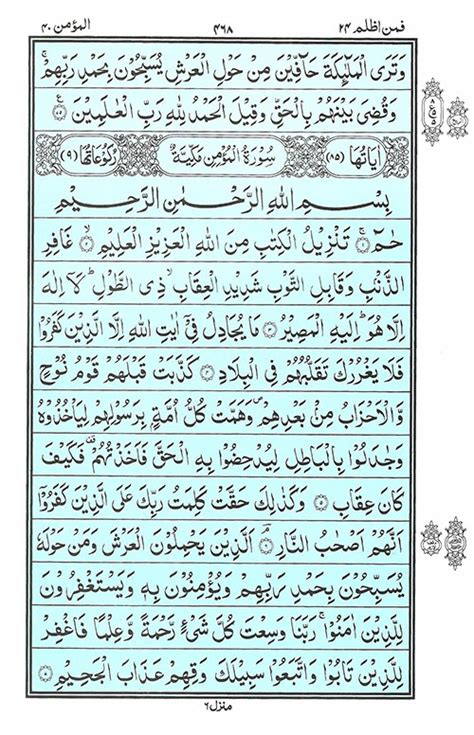 فمن اظلم ٢٤ ٤٦٨ المؤمن ٤٠
وَتَرَى الْمَلٰٓئِكَةَ حَآفِّيْنَ مِنْ حَوْلِ الْعَرْشِ يُسَبِّحُوْنَ بِحَمْدِ رَبِّهِمْ ۚ
وَقُضِىَ بَيْنَهُمْ بِالْحَقِّ وَقِيْلَ الْحَمْدُ لِلّٰهِ رَبِّ الْعٰلَمِيْنَ
اٰيَاتُهَا (٨٥) سُوْرَةُ الْمُؤْمِنِ مَكِّيَّةٌ رُكُوْعَاتُهَا (٩)
بِسْمِ اللهِ الرَّحْمٰنِ الرَّحِيْمِ
حٰمٓ ۚ تَنْزِيْلُ الْكِتٰبِ مِنَ اللهِ الْعَزِيْزِ الْعَلِيْمِ ۙ غَافِرِ
الذَّنْۢبِ وَقَابِلِ التَّوْبِ شَدِيْدِ الْعِقَابِ ۙ ذِى الطَّوْلِ ؕ لَآ اِلٰهَ
اِلَّا هُوَ ؕ اِلَيْهِ الْمَصِيْرُ مَا يُجَادِلُ فِىْٓ اٰيٰتِ اللهِ اِلَّا الَّذِيْنَ كَفَرُوْا
فَلَا يَغْرُرْكَ تَقَلُّبُهُمْ فِى الْبِلَادِ كَذَّبَتْ قَبْلَهُمْ قَوْمُ نُوْحٍ
وَّالْاَحْزَابُ مِنْۢ بَعْدِهِمْ ۪ وَهَمَّتْ كُلُّ اُمَّةٍۭ بِرَسُوْلِهِمْ لِيَاْخُذُوْهُ
وَجٰدَلُوْا بِالْبَاطِلِ لِيُدْحِضُوْا بِهِ الْحَقَّ فَاَخَذْتُهُمْ ۟ فَكَيْفَ
كَانَ عِقَابِ وَكَذٰلِكَ حَقَّتْ كَلِمَتُ رَبِّكَ عَلَى الَّذِيْنَ كَفَرُوْٓا
اَنَّهُمْ اَصْحٰبُ النَّارِ ۘ اَلَّذِيْنَ يَحْمِلُوْنَ الْعَرْشَ وَمَنْ حَوْلَهٗ
يُسَبِّحُوْنَ بِحَمْدِ رَبِّهِمْ وَيُؤْمِنُوْنَ بِهٖ وَيَسْتَغْفِرُوْنَ
لِلَّذِيْنَ اٰمَنُوْا ۚ رَبَّنَا وَسِعْتَ كُلَّ شَىْءٍ رَّحْمَةً وَّعِلْمًا فَاغْفِرْ
لِلَّذِيْنَ تَابُوْا وَاتَّبَعُوْا سَبِيْلَكَ وَقِهِمْ عَذَابَ الْجَحِيْمِ
منزل ٦